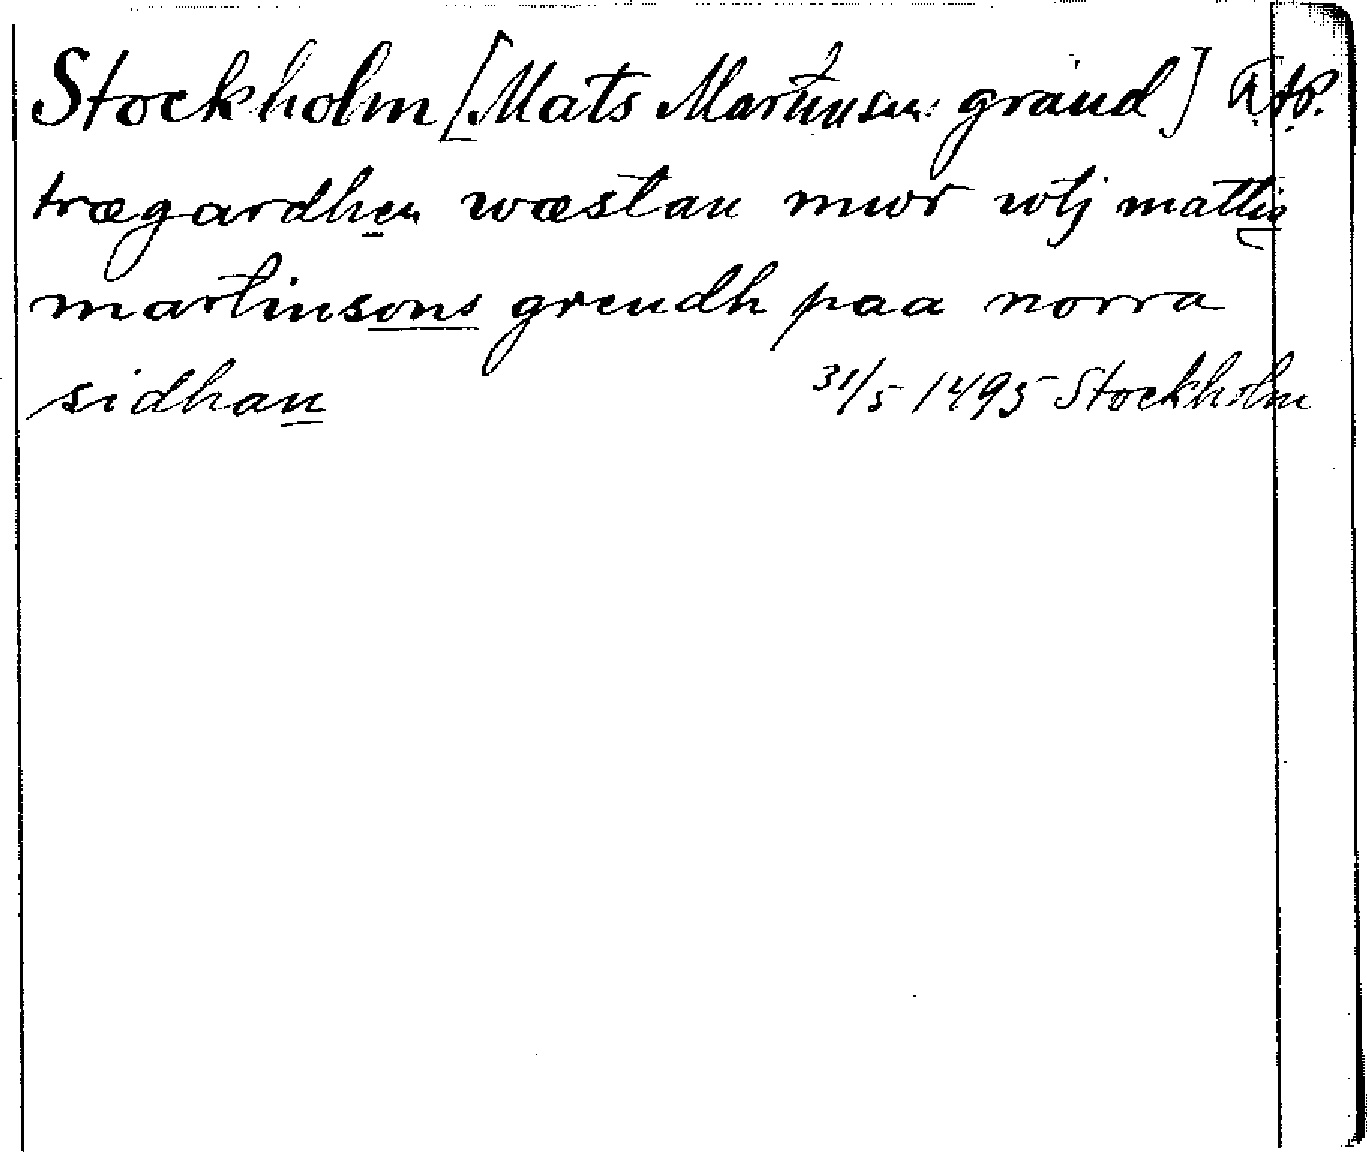 Stockholm [Mats Martinsons gränd]
trægardhen wæstan mwr wtj mattis
martinsons grendh paa norra
sidhan 31/5 1495 Stockholm